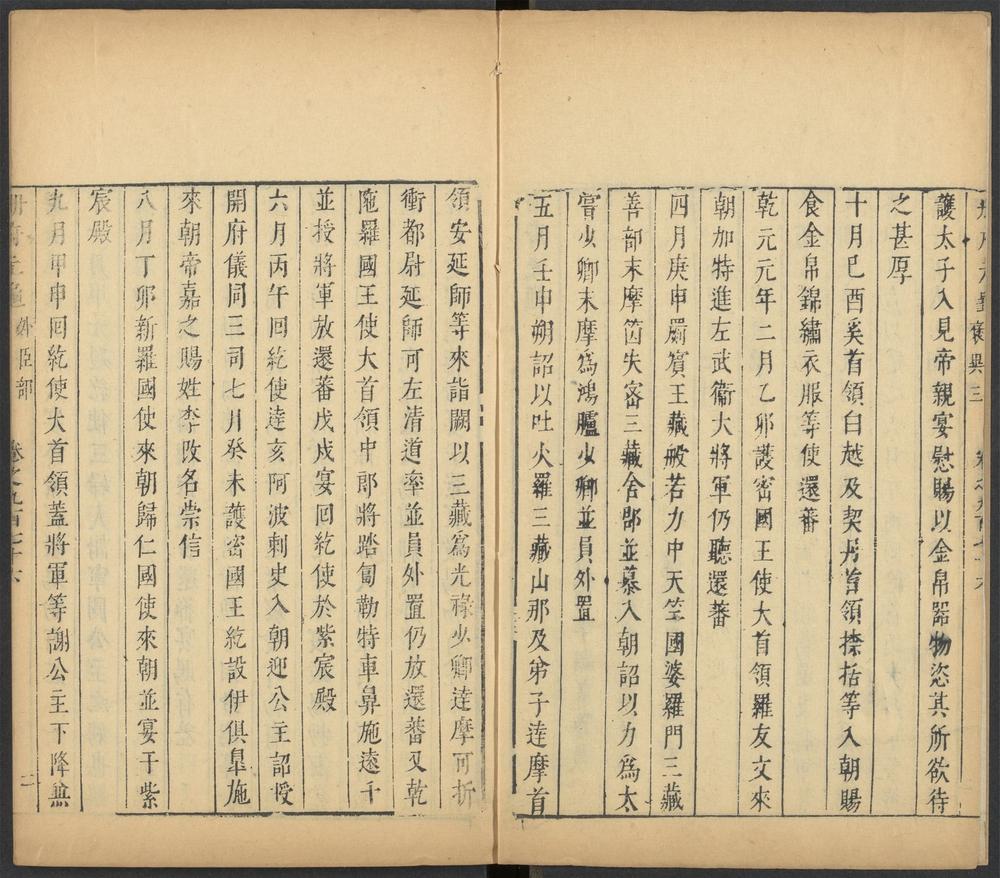 冊府元龜褒異三 卷之九百七十六
護太子入見帝親宴慰賜以金帛器物恣其所欲待
之甚厚
十月巳酉奚首領白越及契丹首領捺括等入朝賜
食金帛錦繡衣服等使還蕃
乾元元年二月乙卯護密國王使大首領羅友文來
朝加特進左武衞大將軍仍聽還蕃
四月庚申罽賓王藏般若力中天竺國婆羅門三藏
善部末摩箇失密三藏舍郡並慕入朝詔以力爲太
嘗少卿末摩爲鴻臚少卿並員外置
五月壬申朔詔以吐火羅三藏山那及弟子達摩首
領安延師等來詣闕以三藏爲光祿少卿達摩可折
衝都尉延師可左清道率並員外置仍放還蕃又乾
陁羅國王使大首領中郎將踏匐勒特車鼻施遠千
並授將軍放還蕃戊戌宴回紇使於紫宸殿
六月丙午回紇使達亥阿波刺史入朝迎公主詔授
開府儀同三司七月癸未護密國王紇設伊俱鼻施
來朝帝嘉之賜姓李改名崇信
八月丁卯新羅國使來朝歸仁國使來朝並宴于紫
宸殿
九月甲申回紇使大首領蓋將軍等謝公主下降無
冊府元龜外臣部 卷之九百七十六 二